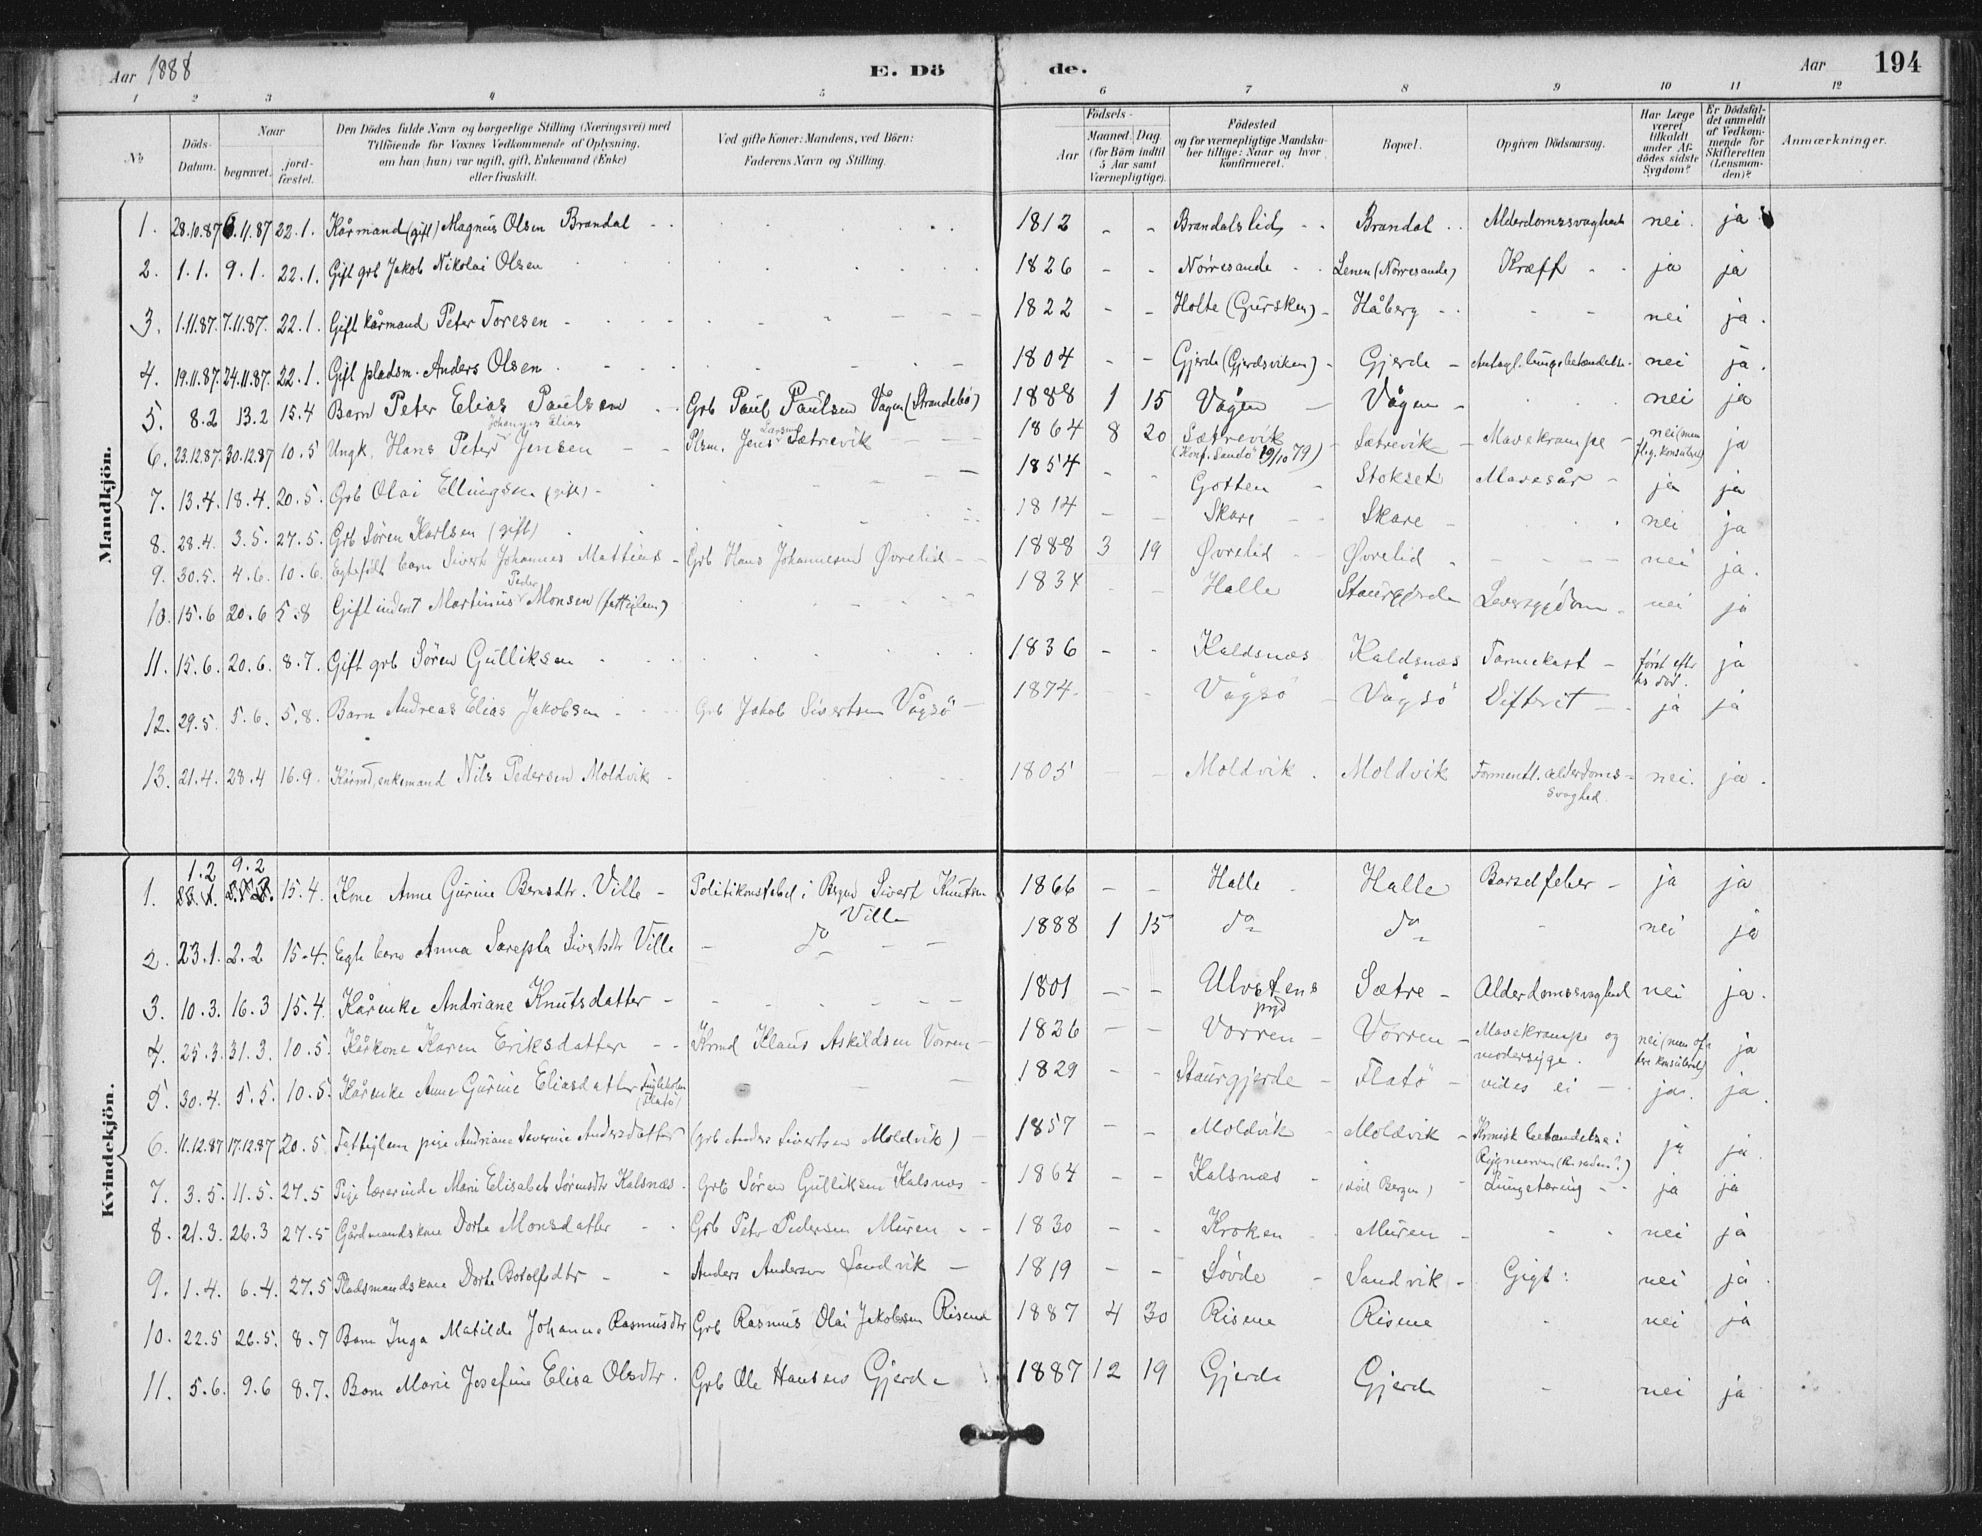 Aar 1888
E. Dö
de.
Aar
194
1 2 3 4 5 6 7 8 9 10 11 12
No
Döds-Datum.
Naar
begravet.
jord-fæstet.
Den Dödes fulde Navn og borgerlige Stilling (Næringsvei) med
Tilföiende for Voxnes Vedkommende af Oplysning,
om han (hun) var ugift, gift, Enkemand (Enke)
eller fraskilt.
Ved gifte Koner: Mandens, ved Börn:
Faderens Navn og Stilling.
Födsels-
Aar
Maaned. Dag.
(for Börn indtil
5 Aar samt
Værnepligtige).
Födested
og for værnepligtige Mandska-
ber tillige: Naar og hvor
konfirmeret.
Bopæl.
Opgiven Dödsaarsag.
Har Læge
været
tilkaldt
under Af-
dödes sidste
Sygdom?
Er Dödsfal-
det anmeldt
af Vedkom-
mende for
Skifteretten
(Lensman-
den)?
Anmærkninger.
Mandkjön.
1. 28.10.87 6.11.87 22.1. Kårmand (gift) Magnus Olsen Brandal 1812 - - Brandalslid Brandal Alderdomssvaghed nei. ja
2. 1.1. 9.1. 22.1. Gift grb Jakob Nikolai Olsen 1826 - - Nörresande Lenen (Nörresande) Kræft ja ja
3. 1.11.87. 7.11.87. 22.1. Gift kårmand Peter Toresen 1822 - - Holte (Gursken) Håberg - - nei ja.
4. 19.11.87. 24.11.87. 22.1. Gift pladsm. Anders Olsen 1804 - - Gjerde (Gjerdsviken) Gjerde Antagl. lungebetændelse nei ja.
5. 8.2 13.2 15.4 Barn Peter Elias Paulsen Grb Paul Paulsen Vågen (Strandebö) 1888 1 15 Vågen Vågen nei ja
6. 23.12.87. 30.12.87 10.5 Ungk. Hans Peter Johannes Elias Jensen Plsm. Jens Larsen Sætrevik 1864 8 20 Sætrevik (Konf. Sandö 19/10 79) Sætrevik Mavekrampe nei (men konsuleret) ja
7. 13.4. 18.4. 20.5. Grb Olai Ellingsen (gift) 1854 - - Gotten Stokset Mavesår ja ja
8. 28.4. 3.5. 27.5. Grb Sören Karlsen (gift) 1814 - - Skare Skare nei ja
9. 30.5. 4.6. 10.6. Egtefödt barn Sivert Johannes Mattias Grb Hans Johannesen Øvrelid 1888 3 19 Øvrelid Øvrelid nei ja.
10. 15.6 20.6 5.8 Gift inderst Martinus Peder Monsen (fattiglem) 1834 - - Halle Staurgjerde Leversygdom nei ja
11. 15.6. 20.6. 8.7. Gift grb Sören Gulliksen 1836 - - Kaldsnæs Kaldsnæs Tarmekast först efter död. ja
12. 29.5 5.6. 5.8. Barn Andreas Elias Jakobsen Grb Jakob Sivertsen Vågsö 1874 - - Vågsö Vågsö Difterit ja ja
13. 21.4. 28.4 16.9. Kårmd, enkemand Nils Pedersen Moldvik 1805 - - Moldvik Moldvik Formentl. alderdomssvaghed. nei. ja.
Kvindekjön.
1. 1.2 9.2 15.4. Kone Anne Gurine Berndtr. Ville Politikonstabel i Bergen Sivert Knutsen Ville 1866 - - Halle Halle Barselfeber ja ja
2. 23.1. 2.2 15.4. Egte barn Anna Sarepta Sivertsdtr Ville do 1888 1 15 do do - nei ja
3. 10.3. 16.3 15.4. Kårenke Andriane Knutsdatter 1801 - - Ulvstens prgd Sætre Alderdomssvaghed nei ja.
4. 25.3. 31.3. 10.5. Kårkone Karen Eriksdatter Krmd Klaus Askildsen Vorren 1826 - - Vorren Vorren Mavekrampe og modersyge. nei (men konsuleret) ja
5. 30.4. 5.5. 10.5. Kårenke Anne Gurine Eliasdatter (Flatö) 1829 - - Staurgjerde Flatö vides ei ja. ja.
6. 11.12.87 17.12.87 20.5 Fattiglem pige Andriane Severine Andersdatter (grb Anders Sivertsen Moldvik) 1857 - - Moldvik Moldvik Kronisk betændelse i ja ja.
7. 3.5. 11.5. 27.5 Pige lærerinde Marie Elisabet Sörensdtr Kalsnæs Grb Sören Gulliksen Kalsnæs 1864 - - Kalsnæs (död Bergen) Lungetæring ja ja
8. 21.3. 26.3 27.5 Gårdmandskone Dorte Monsdatter Grb Petr Pedersen Muren 1830 - - Kroken Muren nei ja
9. 1.4. 6.4. 27.5 Pladsmandskone Dorte Botolfsdtr Anders Andersen Sandvik 1819 - - Søvde Sandvik Gigt nei ja.
10. 22.5 26.5. 8.7 Barn Inga Matilde Johanne Rasmusdtr Grb Rasmus Olai Jakobsen Risene 1887 4 30 Risene Risene nei ja
11. 5.6. 9.6 8.7. Barn Marie Josefine Elisa Olsdtr. Grb Ole Hansen Gjerde 1887 12 19 Gjerde Gjerde - nei ja